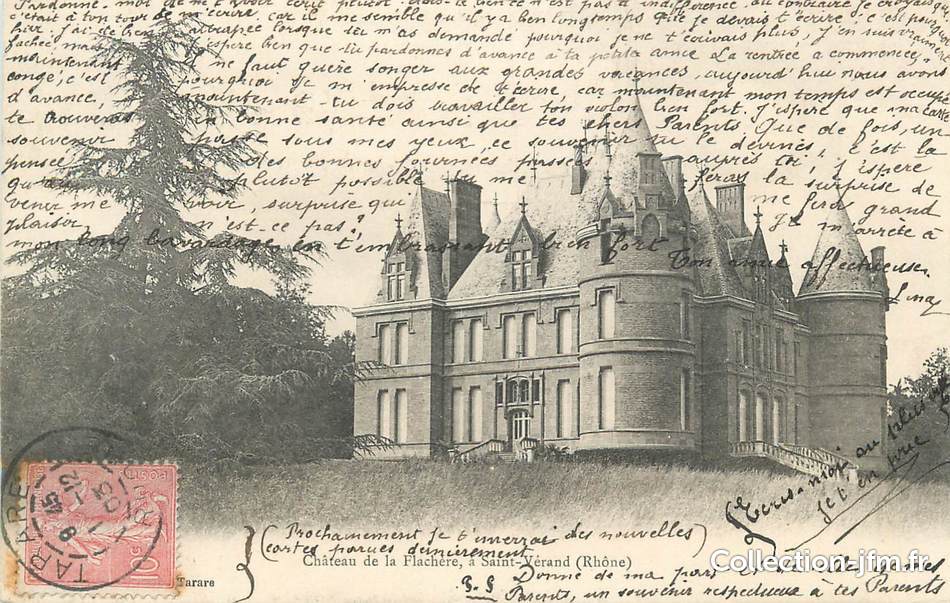 Pardonne-moi de ne t'avoir écrit plutôt
c'était à ton tour de m'écrire, car il me semble qu'il y a bien longtemps que je devais t'écrire, c'est pour
hier j'ai été bien attrapée lorsque tu m'as demandé pourquoi je ne t'écrivais plus, j'en suis vraiment
fâchée, mais j'espère bien que tu pardonnes d'avance à ta petite amie La rentrée a commencée,
maintenant il ne faut guère songer aux grandes vacances, aujourd'hui nous avons
congé, c'est pourquoi je m'empresse de t'écrire car maintenant mon temps est occupé
d'avance, maintenant tu dois travailler ton violon bien fort, J'espère que ma carte
te trouveras en bonne santé ainsi que tes chers Parents Que de fois, un
souvenir passe sous mes yeux, ce souvenir tu le devines, c'est la
pensée des bonnes journées passées auprès toi, j'espère
plutôt possible tu me feras la surprise de
venir me voir, surprise qui me fera grand
plaisir n'est-ce pas? Je m'arrête à
mon long bavardage en t'embrassant bien fort Ton amie affectueuse
Lina
Ecris-moi au plus vite
je t'en prie
(Prochainement je t'enverrai des nouvelles)
(cartes parues dernièrement
Château de la Flachère, à Saint-Vérand (Rhône)
Collection-jfm.fr
P.S Donne de ma part
Parents, un souvenir respectueux à tes Parents
TARARE
RHONE
10c
Tarare